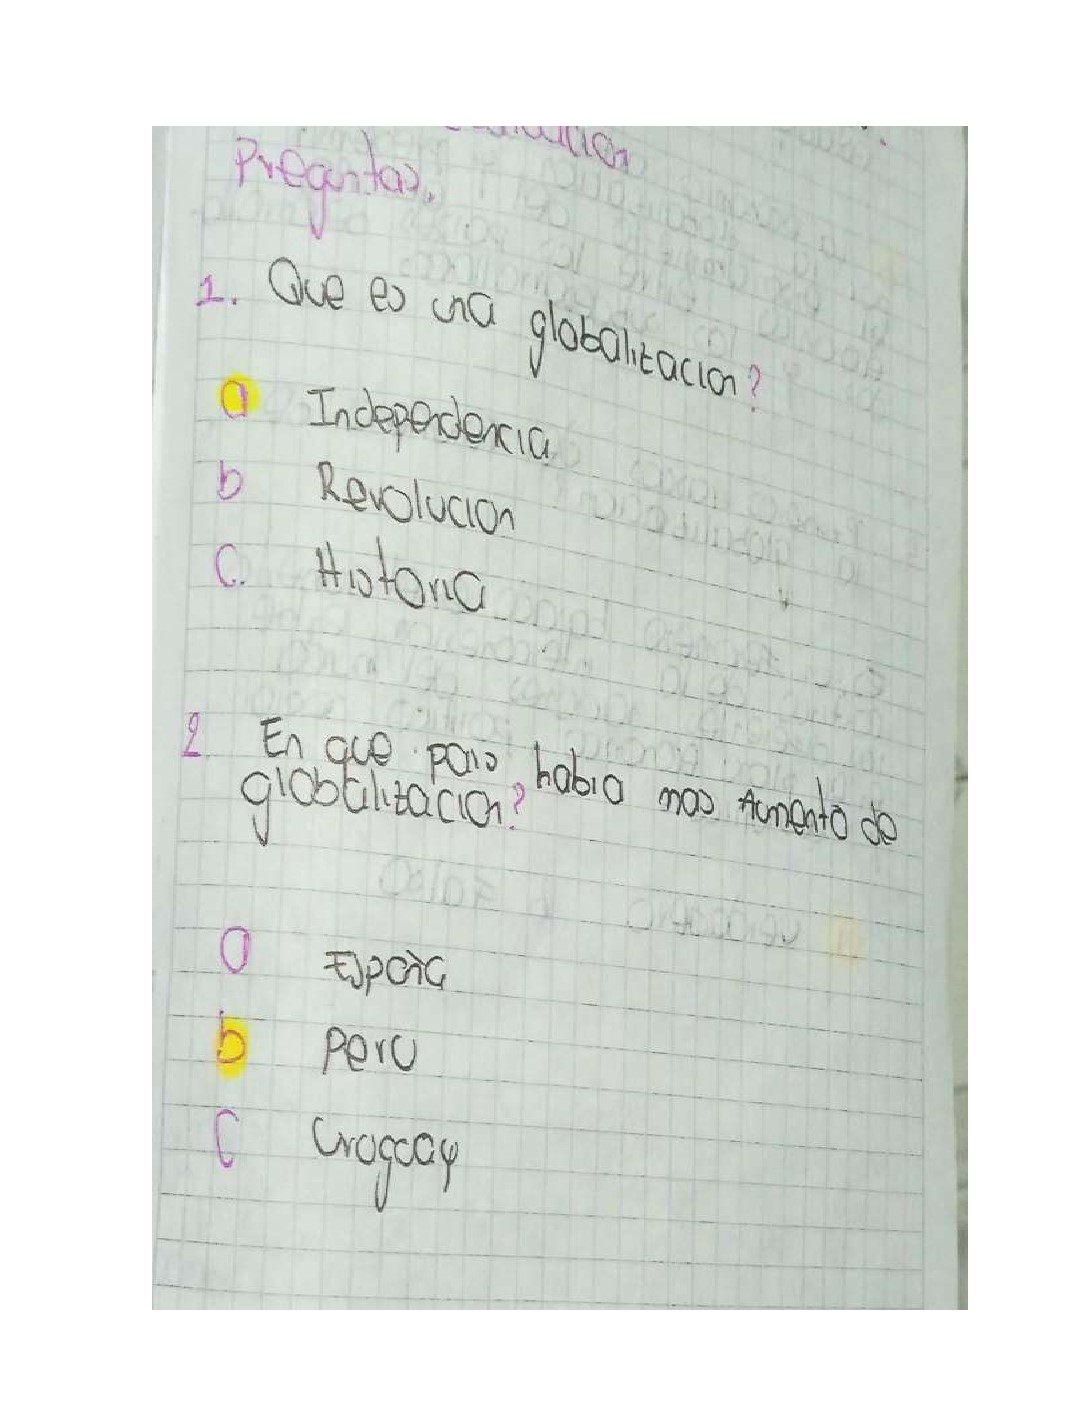 Preguntas.
1. Que es una globalizacion?
a Independencia
b Revolucion
C. Historia
2 En que pais habia mas Aumento de
globalizacion?
a España
b Peru
C Uruguay